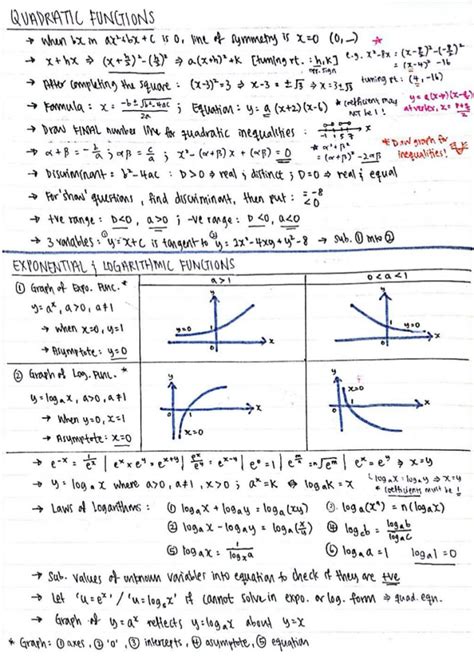 QUADRATIC FUNCTIONS
→ When bx in ax²+bx+c is 0, line of symmetry is x=0 (0,-)
→ x+hx ⇒ (x+h/2)²-(h/2)² ⇒ a(x+h)²+k [turning pt.: h,k] e.g. x²-8x = (x-8/2)²-(8/2)²
opp. sign = (x-4)²-16
→ After completing the square: (x-3)²=3 ⇒ x-3=±√3 ⇒ x=3±√3 turning pt: (4,-16)
→ Formula: x = -b±√b²-4ac / 2a ; Equation: y=a(x+2)(x-6) *coefficient may not be 1!
→ Draw FINAL number line for quadratic inequalities:
* Draw graph for inequalities!
→ α+β = -b/a ; αβ = c/a ; x²-(α+β)x+(αβ)=0
* α²+β² = (α+β)²-2αβ
→ Discriminant: b²-4ac : D>0 ⇒ real ; distinct ; D=0 ⇒ real ; equal
→ For 'show' questions, find discriminant, then put : = -8 <0
→ +ve range: D<0, a>0 ; -ve range: D<0, a<0
→ 3 variables: ① y=x+c is tangent to ② y=2x²-4xy+y²-8 → sub. ① into ②
EXPONENTIAL ; LOGARITHMIC FUNCTIONS
a>1
0<a<1
① Graph of Expo. Func. *
y=aˣ, a>0, a≠1
→ When x=0, y=1
→ Asymptote: y=0
y
y=0
1
0
x
y
y=0
1
0
x
② Graph of Log. Func. *
y=logₐx, a>0, a≠1
→ When y=0, x=1
→ Asymptote: x=0
y
0
1
x
x=0
y
x=0
0
1
x
→ e⁻ˣ = 1/eˣ | eˣ × eʸ = eˣ⁺ʸ | eˣ/eʸ = eˣ⁻ʸ | e⁰=1 | e^(m/n) = ⁿ√eᵐ | eˣ=eʸ ⇒ x=y
→ y=logₐx where a>0, a≠1, x>0 ; aˣ=k ⇔ logₐk=x
logₐx=logₐy ⇒ x=y
* coefficients must be 1
→ Laws of Logarithms: ① logₐx+logₐy=logₐ(xy) ③ logₐ(xⁿ)=n(logₐx)
② logₐx-logₐy=logₐ(x/y) ④ log꜀b = logₐb/logₐc
⑤ logₐx = 1/logₓa ⑥ logₐa=1 | logₐ1=0
→ Sub. values of unknown variables into equation to check if they are +ve
→ Let 'u=eˣ' / 'u=logₑx' if cannot solve in expo. or log. form ⇒ quad. eqn.
→ Graph of y=aˣ reflects y=logₐx about y=x
* Graph: ① axes, ② '0', ③ intercepts, ④ asymptote, ⑤ equation